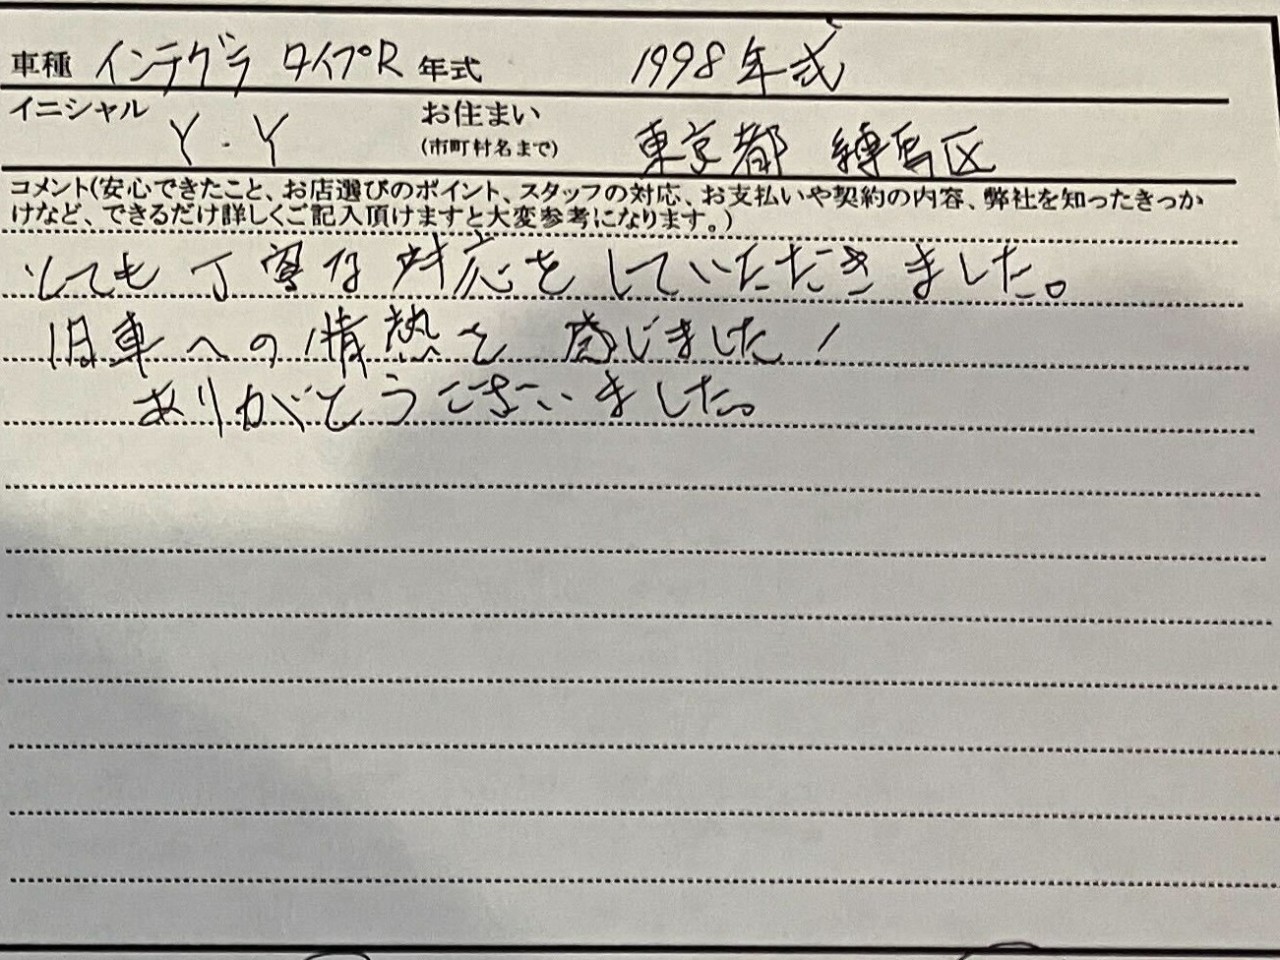 車種 インテグラ タイプR 年式 1998年式
イニシャル Y.Y お住まい(市町村名まで) 東京都 練馬区
コメント(安心できたこと、お店選びのポイント、スタッフの対応、お支払いや契約の内容、弊社を知ったきっか
けなど、できるだけ詳しくご記入頂けますと大変参考になります。)
とても丁寧な対応をしていただきました。
旧車への情熱を感じました!
ありがとうございました。